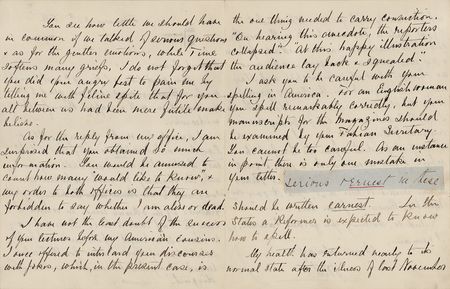 You see how little we should have
in common if we talked of serious questions
& as for the gentler emotions, while Time
softens many griefs, I do not forget that
you did your angry best to pain me by
telling me with feline spite that for you
all between us had been mere futile make
believe.
As for the reply from my office, I am
surprised that you obtained so much
information. You would be amused to
count how many "would like to know", &
my orders to both offices is that they are
forbidden to say whether I am alive or dead.
I have not the least doubt of the success
of your lectures before my American cousins.
I once offered to interlard your discourses
with jokes, which, in the present case, is
the one thing needed to carry conviction.
"On hearing this anecdote, the reporters
collapsed". "At this happy illustration
the audience lay back & squealed".
I ask you to be careful with your
spelling in America. For an English woman
you spell remarkably correctly, but your
manuscripts for the Magazines should
be examined by your Fabian Secretary.
You cannot be too careful. As an instance
in point there is only one mistake in
your letter.
serious ernest in these
should be written earnest. In the
States a Reformer is expected to know
how to spell.
My health has returned nearly to its
normal state after the illness of last November